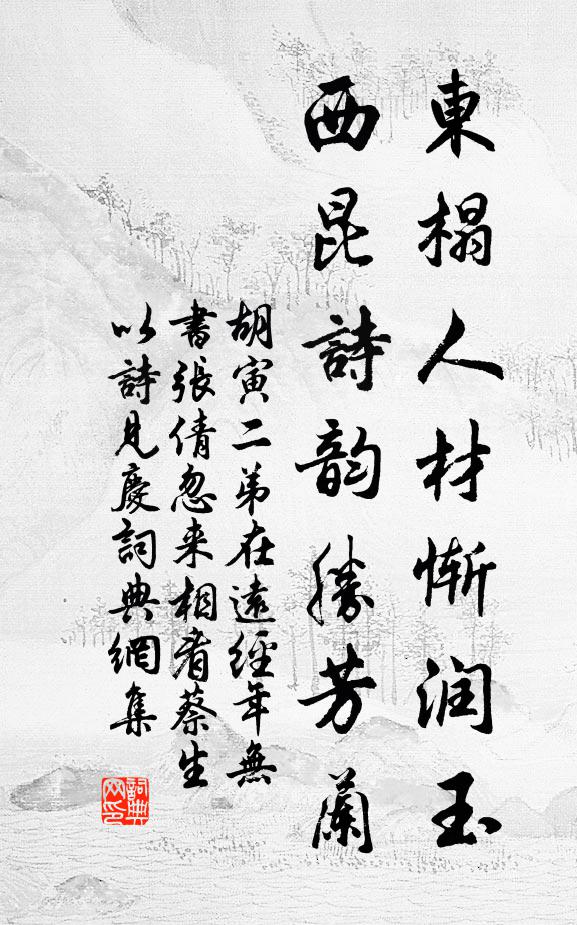 東榻人材慚润玉
西昆詩韵勝芳蘭
胡寅二弟在遠經年無
書張倩忽来相看蔡生
以詩見慶詞典網集
詞典
网印